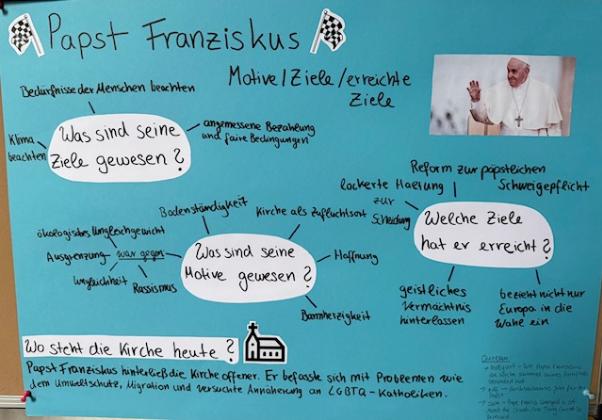 Papst Franziskus
Motive/Ziele/erreichte
Ziele
Bedürfnisse der Menschen beachten
Klima
beachten
Was sind seine
Ziele gewesen?
angemessene Bezahlung
und faire Bedingungen
Reform zur päpstlichen
Schweigepflicht
lockerte Haltung
zur
Scheidung
Welche Ziele
hat er erreicht?
geistliches
Vermächtnis
hinterlassen
bezieht nicht nur
Europa in die
Wahl ein
Bodenständigkeit
Kirche als Zufluchtsort
ökologisches Ungleichgewicht
Ausgrenzung war gegen
Ungleichheit
Rassismus
Was sind seine
Motive gewesen?
Hoffnung
Barmherzigkeit
Wo steht die Kirche heute?
Papst Franziskus hinterließ die Kirche offener. Er befasste sich mit Problemen wie
dem Umweltschutz, Migration und versuchte Annäherung an LGBTQ-Katholiken.
Quellen: